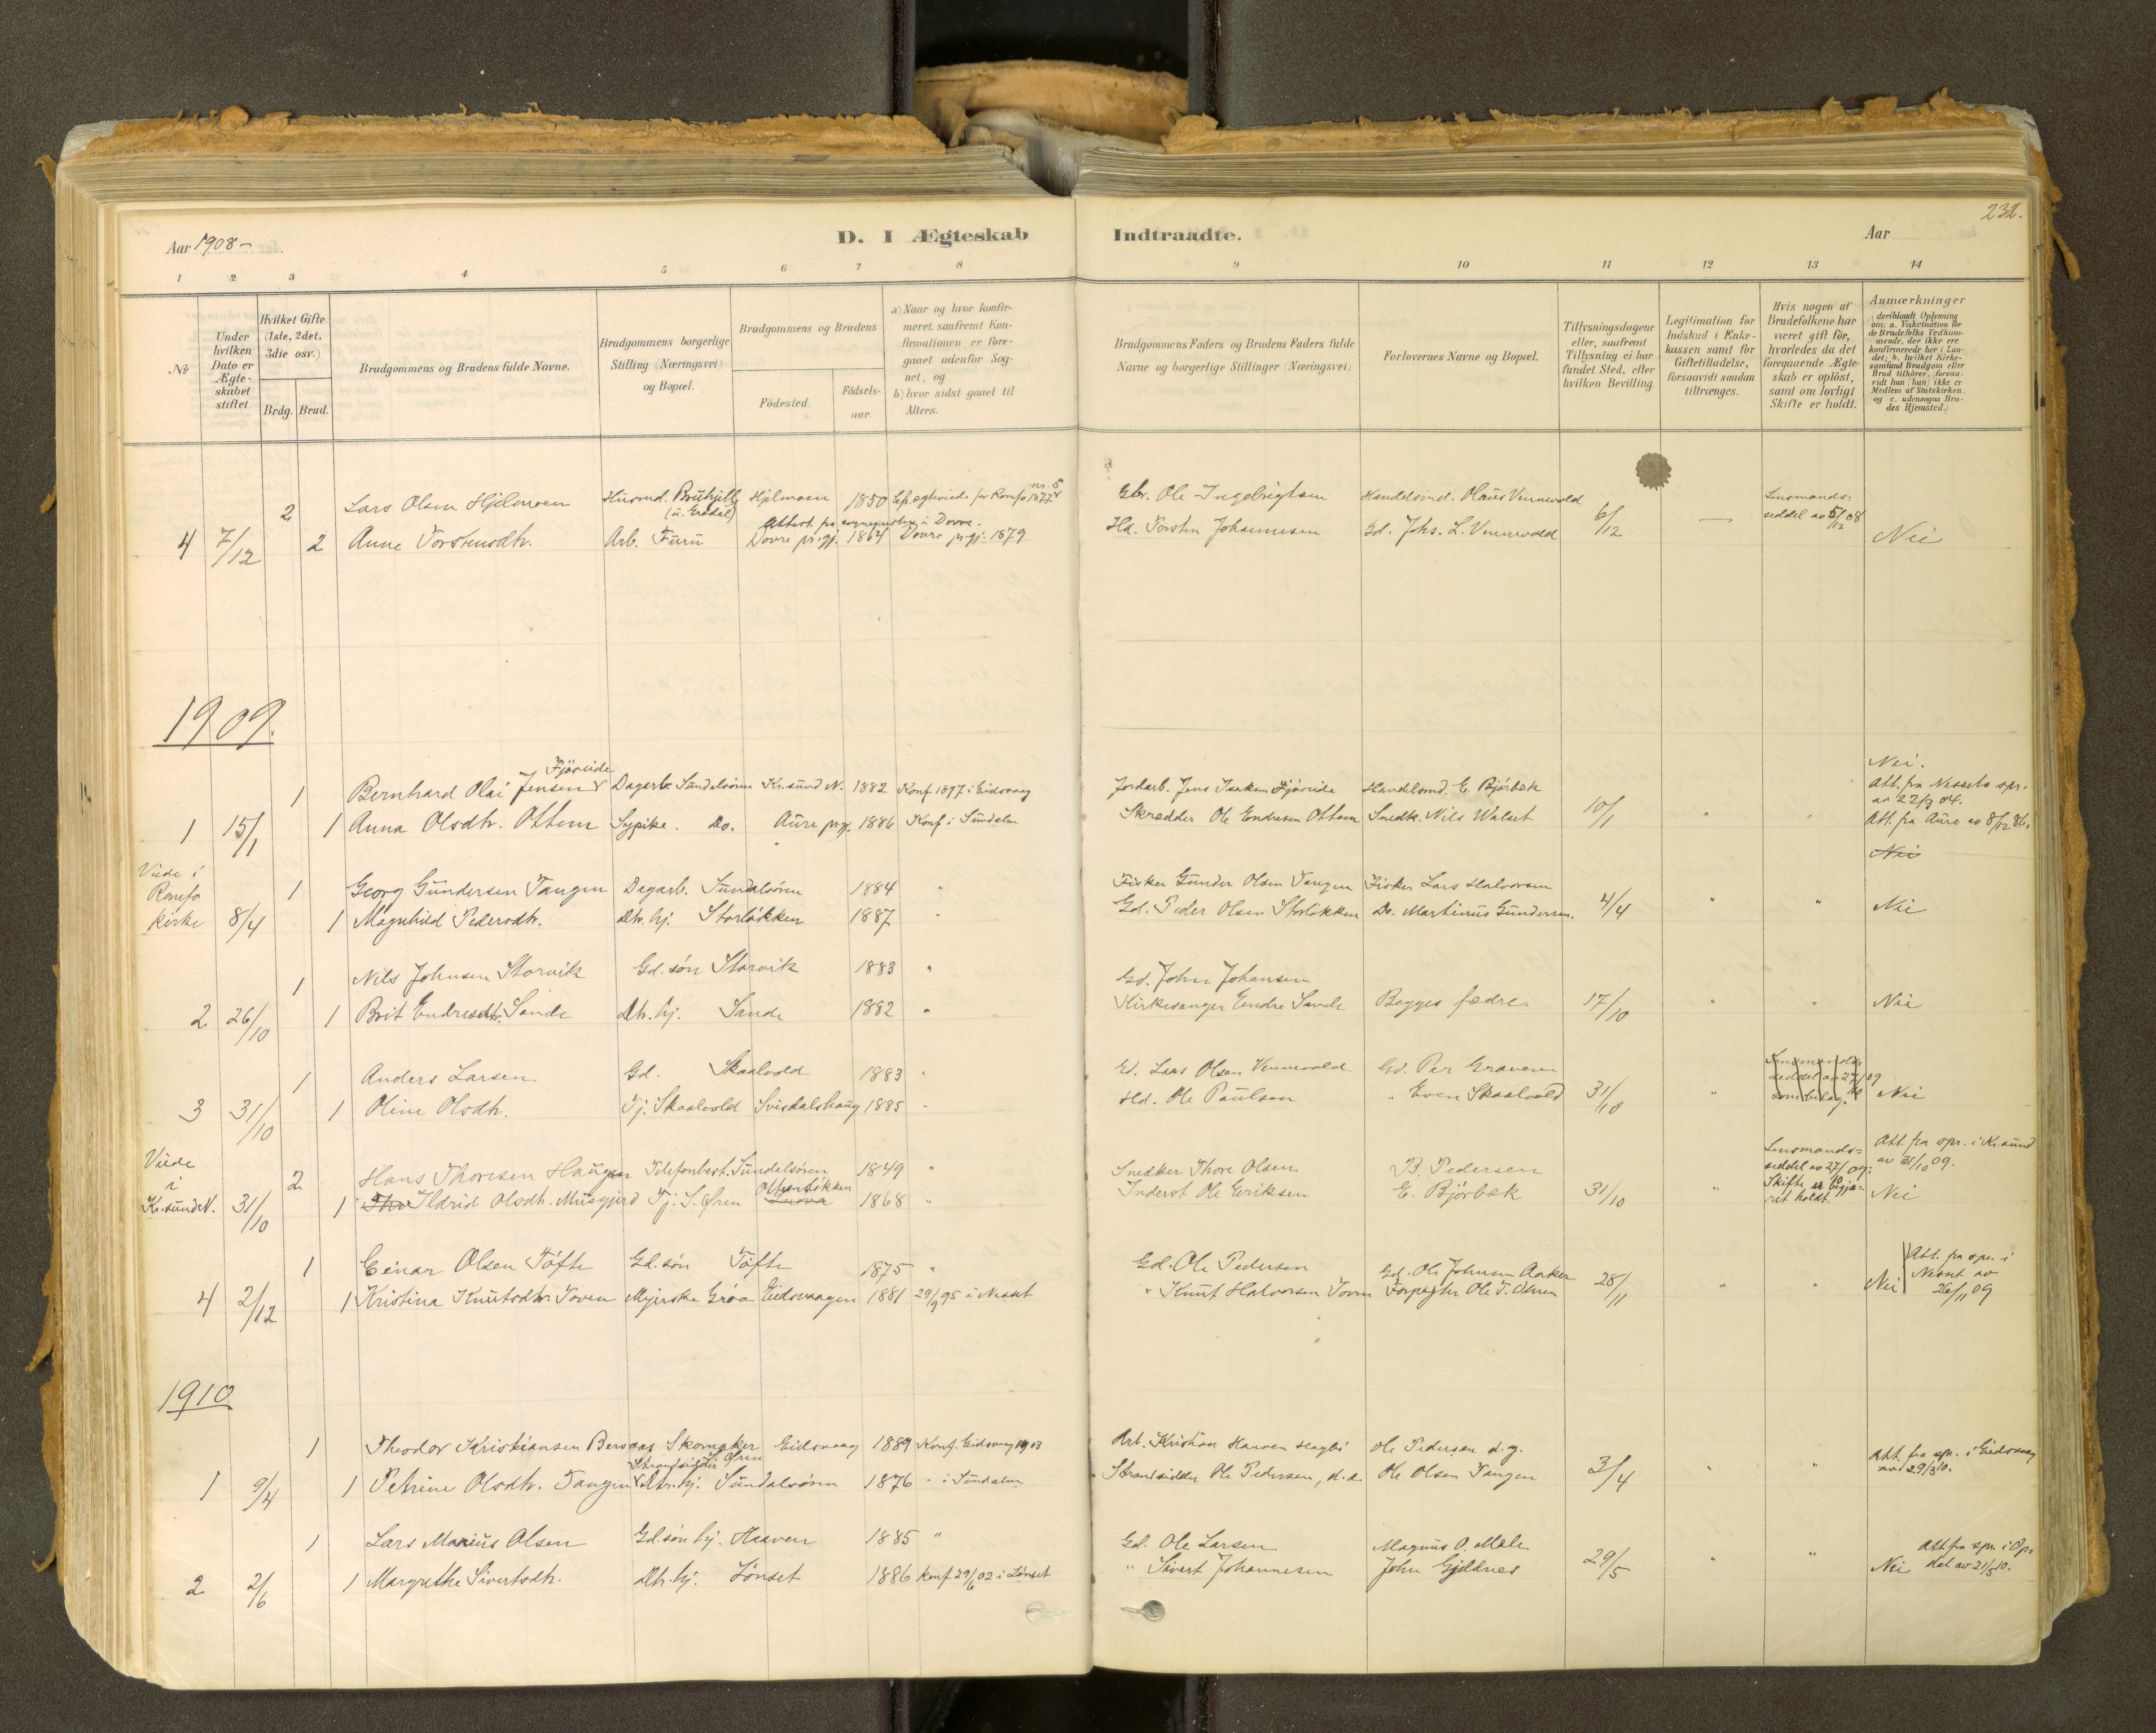 Aar 1908-
D. I Ægteskab
Indtraadte.
Aar
232.
1 2 3 4 5 6 7 8
9 10 11 12 13 14
No
Under hvilken Dato er Ægteskabet stiftet.
Hvilket Gifte (1ste, 2det, 3die osv.)
Brdg. Brud.
Brudgommens og Brudens fulde Navne.
Brudgommens borgerlige Stilling (Næringsvei) og Bopæl.
Brudgommens og Brudens
Födested.
Födselsaar.
a) Naar og hvor konfirmeret, saafremt Konfirmationen er foregaaet udenfor Sognet, og
b) hvor sidst gaaet til Alters.
Brudgommens Faders og Brudens Faders fulde Navne og borgerlige Stillinger (Næringsvei)
Forlovernes Navne og Bopæl.
Tillysningsdagene eller, saafremt Tillysning ei har fundet Sted, efter hvilken Bevilling.
Legitimation for Indskud i Enkekassen samt for Giftetilladelse, forsaavidt saadan tiltrænges.
Hvis nogen af Brudefolkene har været gift för, hvorledes da det foregaaende Ægteskab er oplöst, samt om lovligt Skifte er holdt.
Anmærkninger (deriblandt Oplysning om: a. Vakcination for de Brudefolks Vedkommende, der ikke ere konfirmerede her i Landet; b. hvilket Kirkesamfund Brudgom eller Brud tilhörer, forsaavidt han (hun) ikke er Medlem af Statskirken, og c. udensogns Brudes Hjemsted.)
2 Lars Olsen Hjelmoen Husmd. Hjelmoen 1850
Ole Ingebrigtsen Handelsmd. Olaus Vennevold
Lensmands-
seddel av 5/12 08
4 7/12 2 Anne Torstensdtr. Arb. Furu
Attest fra sogneprsten i Dovre.
Dovre prgj. 1864 Dovre prgj. 1879
Torsten Johannesen Gd. Johs. L. Vennevold 6/12 — Nei
1909.
Fjöseide
1 Bernhard Olai Jensen Dagarb. Sundalsören Kr.sund N. 1882 Konf 1897 i Eidsvaag
Jordarb. Jens Isaksen Fjöseide Handelsmd. E. Björbæk
Nei.
Att. fra Nessets spr.
av 22/3 04.
1 15/1 1 Anna Olsdtr. Ottem Sypike. Do. Aure prgj. 1886 Konf i Sundalen
Skrædder Ole Endresen Ottem Snedk. Nils Walset 10/1
Att. fra Aure av 8/12 86.
Nei
Viede i
Romfo
kirke
1 Georg Gundersen Tangen Dagarb. Sundalsören 1884 "
Fisker Gunder Olsen Tangen Fisker Lars Halvorsen
8/4 1 Magnhild Pedersdtr. dtr. hj. Storlökken 1887 "
Gd. Peder Olsen Storlökken Do. Martinus Gundersen. 4/4 " " Nei
1 Nils Johnsen Storvik Gd. sön Storvik 1883 "
Gd. John Johansen
2 26/10 1 Brit Endresdtr. Sande dtr. hj. Sande 1882 "
Kirkesanger Endre Sande Begges fædre. 17/10 " " Nei
1 Anders Larsen Gd. Skaalvold 1883 "
Gd. Lars Olsen Vennevold Gd. Per Graven
Lensmands-
seddel av 27/10 09
3 31/10 1 Oline Olsdtr. Tj. Skaalvold Svisdalshaug 1885 "
Hd. Ole Paulsen " Even Skaalvold 31/10 " Nei
Viede
i
Kr.sund N.
2 Hans Thoresen Haugen Telefonbest. Sundalsören 1849 "
Snedker Thore Olsen B. Pedersen
Lensmands-
seddel av 27/10 09.
Skifte er begjæ-
ret holdt.
Att. fra spr. i Kr.sund
av 31/10 09.
31/10 1 Ildrid Olsdtr. Musgjerd Tj. S. Ören 1868 "
Inderst Ole Eriksen E. Björbæk 31/10 " Nei
1 Einar Olsen Töfte Gd. sön Töfte 1875 "
Gd. Ole Pedersen Gd. Ole Johnsen Aaker
Att. fra spr. i
Nesset av
26/11 09
4 2/12 1 Kristina Knutsdtr. Toven Mejerske Gröa Eidsvaagen 1881 29/9 95 i Nesset
" Knut Halvorsen Toven Forpagter Ole T. 28/11 " " Nei
1910
1 Theodor Kristiansen Bersaas Skomaker Eidsvaag 1889 Konf. Eidsvaag 1903
Arb. Kristian Ole Pedersen d.y.
Strandsidder Ören
1 9/4 1 Petrine Olsdtr. Tangen dtr. hj. Sundalsören 1876 " i Sundalen
Strandsidder Ole Pedersen, d.e. Ole Olsen Tangen 3/4 " "
Att. fra spr. i Eidsvaag
av 29/3 10.
1 Lars Marius Olsen Gd. sön hj. Haaven 1885 "
Gd. Ole Larsen Magnus O. Mæle
2 2/6 1 Margrethe Sivertsdtr. dtr. hj. Lönset 1886 konf. 29/6 02 i Lönset
" Sivert Johannesen John Gjeldnes 29/5 " " Nei
Att fra spr. i Op-
dal av 21/5 10.